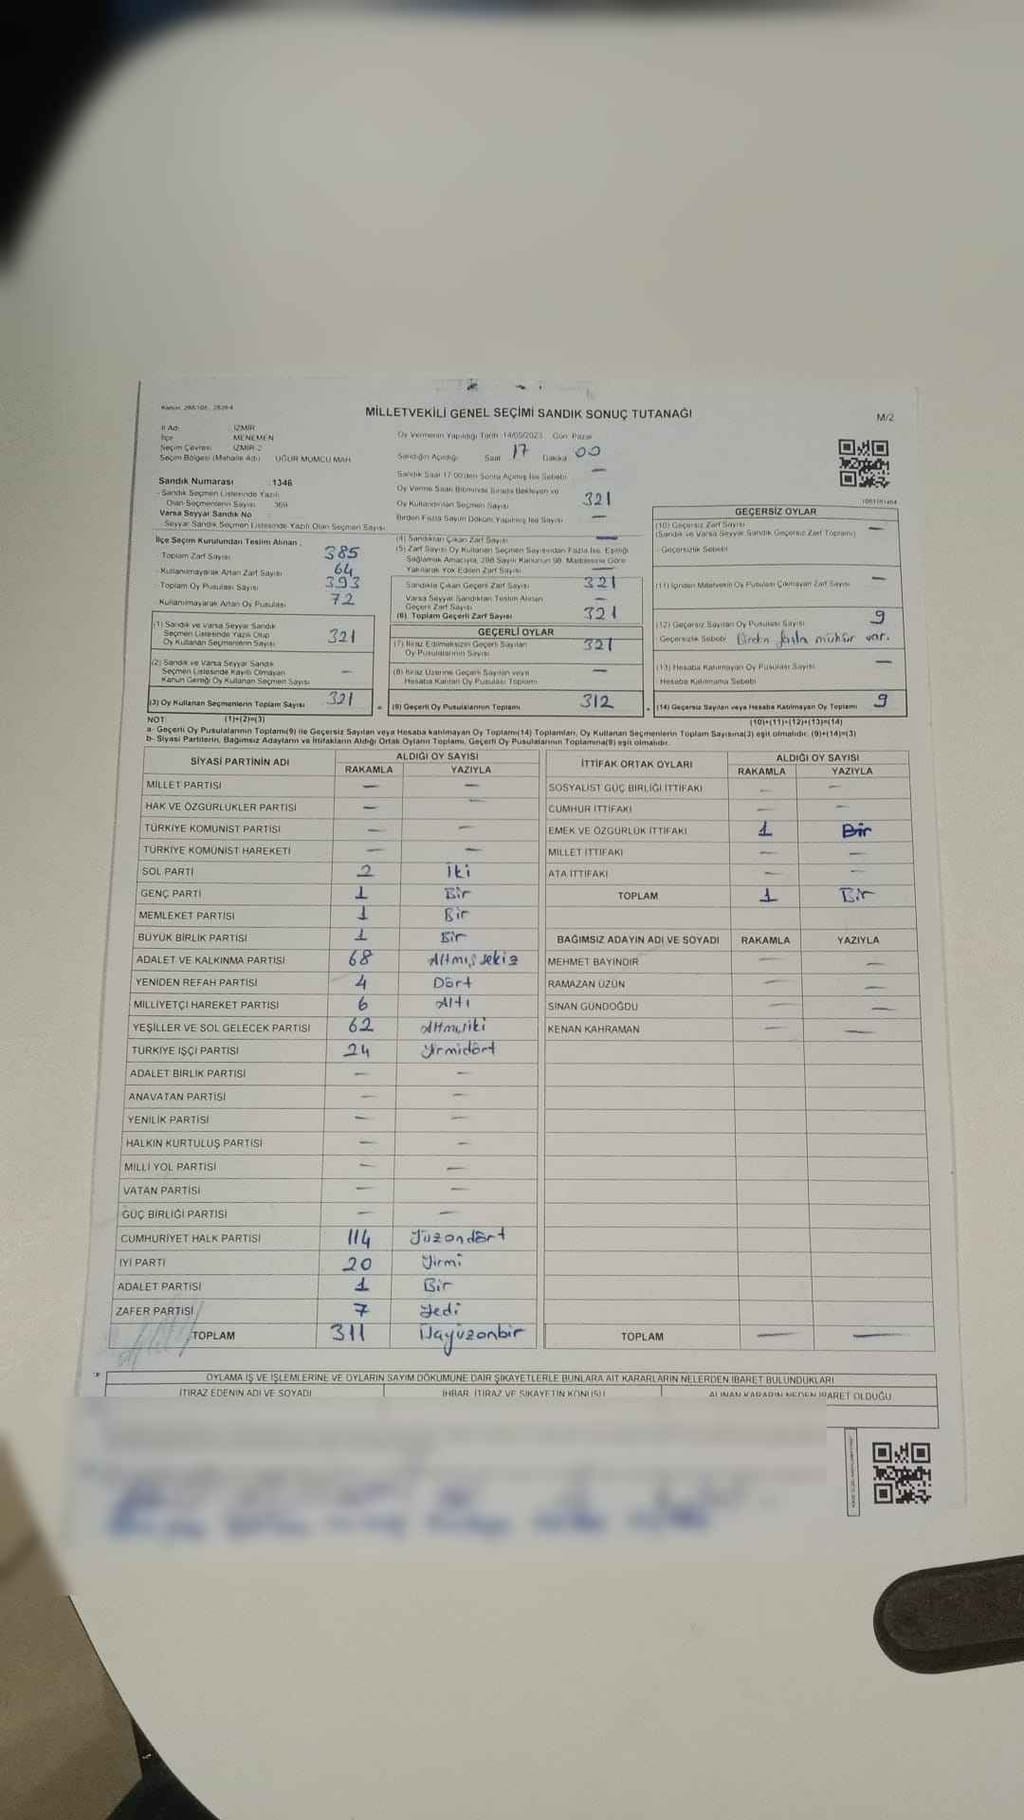 MİLLETVEKİLİ GENEL SEÇİMİ SANDIK SONUÇ TUTANAĞI
M/2
İl Adı : İZMİR
İlçe : MENEMEN
Seçim Çevresi : İZMİR-2
Seçim Bölgesi (Mahalle Adı) : UĞUR MUMCU MAH.
Sandık Numarası : 1346
- Sandık Seçmen Listesinde Yazılı
Olan Seçmenlerin Sayısı : 369
Varsa Seyyar Sandık No
Seyyar Sandık Seçmen Listesinde Yazılı Olan Seçmen Sayısı
İlçe Seçim Kurulundan Teslim Alınan :
Toplam Zarf Sayısı 385
- Kullanılmayarak Artan Zarf Sayısı 64
Toplam Oy Pusulası Sayısı 393
- Kullanılmayarak Artan Oy Pusulası 72
(1) Sandık ve Varsa Seyyar Sandık
Seçmen Listesinde Yazılı Olup
Oy Kullanan Seçmenlerin Sayısı 321
(2) Sandık ve Varsa Seyyar Sandık
Seçmen Listesinde Kayıtlı Olmayan
Kanun Gereği Oy Kullanan Seçmen Sayısı —
(3) Oy Kullanan Seçmenlerin Toplam Sayısı 321
(1)+(2)=(3)
Oy Vermenin Yapıldığı Tarih : 14/05/2023 Gün : Pazar
Sandığın Açıldığı Saat 17 Dakika 00
Sandık Saat 17:00'den Sonra Açılmış İse Sebebi —
Oy Verme Saati Bitiminde Sırada Bekleyen ve
Oy Kullandırılan Seçmen Sayısı 321
Birden Fazla Sayım Döküm Yapılmış İse Sayısı —
(4) Sandıktan Çıkan Zarf Sayısı —
(5) Zarf Sayısı Oy Kullanan Seçmen Sayısından Fazla İse, Eşitliği
Sağlamak Amacıyla, 298 Sayılı Kanunun 98. Maddesine Göre
Yakılarak Yok Edilen Zarf Sayısı —
Sandıkta Çıkan Geçerli Zarf Sayısı 321
Varsa Seyyar Sandıktan Teslim Alınan
Geçerli Zarf Sayısı —
(6) Toplam Geçerli Zarf Sayısı 321
GEÇERLİ OYLAR
(7) İtiraz Edilmeksizin Geçerli Sayılan
Oy Pusulalarının Sayısı 321
(8) İtiraz Üzerine Geçerli Sayılan veya
Hesaba Katılan Oy Pusulası Toplamı —
(9) Geçerli Oy Pusulalarının Toplamı 312
GEÇERSİZ OYLAR
(10) Geçersiz Zarf Sayısı —
(Sandık ve Varsa Seyyar Sandık Geçersiz Zarf Toplamı)
Geçersizlik Sebebi
(11) İçinden Milletvekili Oy Pusulası Çıkmayan Zarf Sayısı —
(12) Geçersiz Sayılan Oy Pusulası Sayısı 9
Geçersizlik Sebebi Birden fazla mühür var.
(13) Hesaba Katılmayan Oy Pusulası Sayısı —
Hesaba Katılmama Sebebi
(14) Geçersiz Sayılan veya Hesaba Katılmayan Oy Toplamı 9
(10)+(11)+(12)+(13)=(14)
NOT
a- Geçerli Oy Pusulalarının Toplamı(9) ile Geçersiz Sayılan veya Hesaba katılmayan Oy Toplamı(14) Toplamları, Oy Kullanan Seçmenlerin Toplam Sayısına(3) eşit olmalıdır. (9)+(14)=(3)
b- Siyasi Partilerin, Bağımsız Adayların ve İttifakların Aldığı Ortak Oyların Toplamı, Geçerli Oy Pusulalarının Toplamına(9) eşit olmalıdır.
SİYASİ PARTİNİN ADI ALDIĞI OY SAYISI
RAKAMLA YAZIYLA
MİLLET PARTİSİ — —
HAK VE ÖZGÜRLÜKLER PARTİSİ — —
TÜRKİYE KOMÜNİST PARTİSİ — —
TÜRKİYE KOMÜNİST HAREKETİ — —
SOL PARTİ 2 İki
GENÇ PARTİ 1 Bir
MEMLEKET PARTİSİ 1 Bir
BÜYÜK BİRLİK PARTİSİ 1 Bir
ADALET VE KALKINMA PARTİSİ 68 Altmışsekiz
YENİDEN REFAH PARTİSİ 4 Dört
MİLLİYETÇİ HAREKET PARTİSİ 6 Altı
YEŞİLLER VE SOL GELECEK PARTİSİ 62 Altmışiki
TÜRKİYE İŞÇİ PARTİSİ 24 Yirmidört
ADALET BİRLİK PARTİSİ — —
ANAVATAN PARTİSİ — —
YENİLİK PARTİSİ — —
HALKIN KURTULUŞ PARTİSİ — —
MİLLİ YOL PARTİSİ — —
VATAN PARTİSİ — —
GÜÇ BİRLİĞİ PARTİSİ — —
CUMHURİYET HALK PARTİSİ 114 Yüzondört
İYİ PARTİ 20 Yirmi
ADALET PARTİSİ 1 Bir
ZAFER PARTİSİ 7 Yedi
TOPLAM 311 Üçyüzonbir
İTTİFAK ORTAK OYLARI ALDIĞI OY SAYISI
RAKAMLA YAZIYLA
SOSYALİST GÜÇ BİRLİĞİ İTTİFAKI — —
CUMHUR İTTİFAKI — —
EMEK VE ÖZGÜRLÜK İTTİFAKI 1 Bir
MİLLET İTTİFAKI — —
ATA İTTİFAKI — —
TOPLAM 1 Bir
BAĞIMSIZ ADAYIN ADI VE SOYADI RAKAMLA YAZIYLA
MEHMET BAYINDIR — —
RAMAZAN UZÜN — —
SİNAN GÜNDOĞDU — —
KENAN KAHRAMAN — —
TOPLAM — —
OYLAMA İŞ VE İŞLEMLERİNE VE OYLARIN SAYIM DÖKÜMÜNE DAİR ŞİKAYETLERLE BUNLARA AİT KARARLARIN NELERDEN İBARET BULUNDUKLARI
İTİRAZ EDENİN ADI VE SOYADI İHBAR, İTİRAZ VE ŞİKAYETİN KONUSU ALINAN KARARIN NEDEN İBARET OLDUĞU